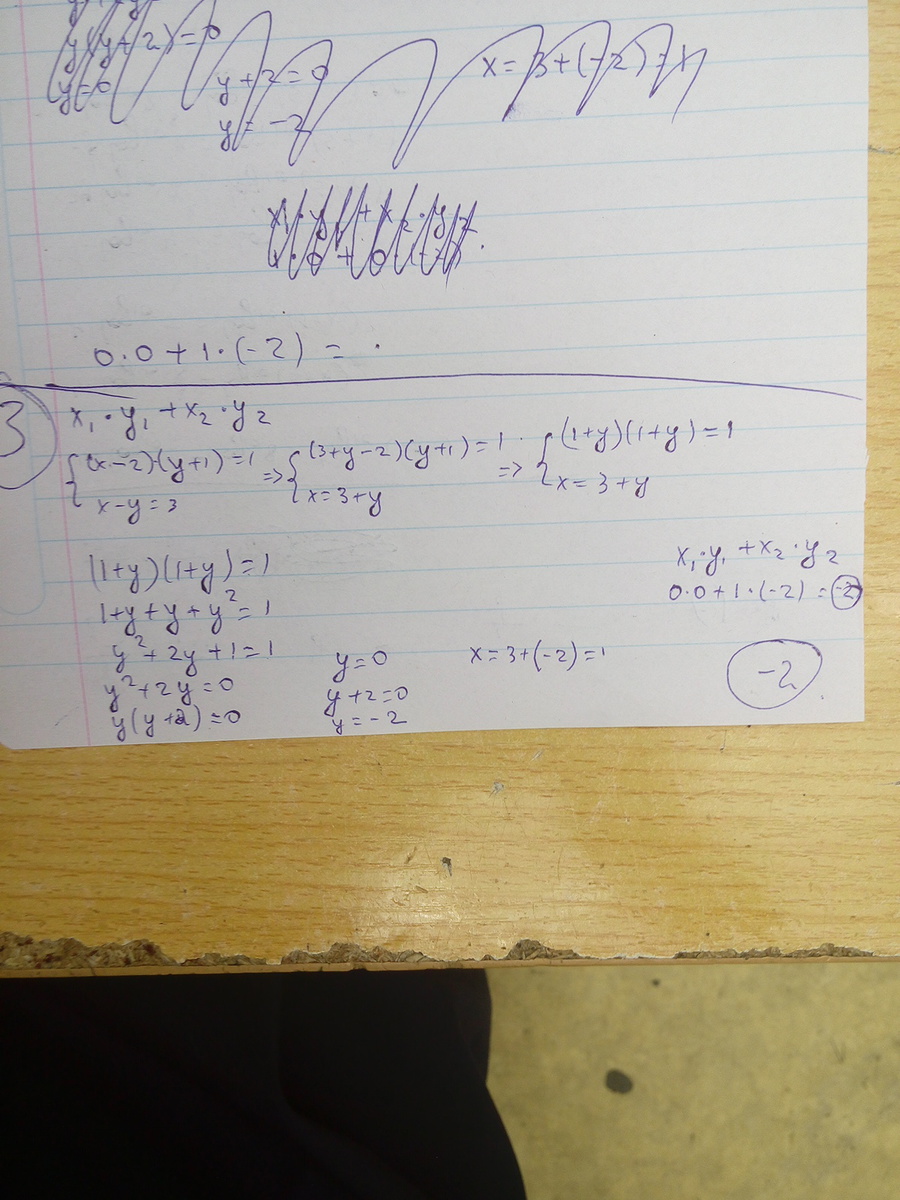 y(y+2)=0
y=0
y+2=0
y=-2
x=3+(-2)=1
0·0+1·(-2)=
3
x₁·y₁+x₂·y₂
{(x-2)(y+1)=1 => {(3+y-2)(y+1)=1 => {(1+y)(1+y)=1
x-y=3 x=3+y x=3+y
(1+y)(1+y)=1
1+y+y+y²=1
y²+2y+1=1
y²+2y=0
y(y+2)=0
y=0
y+2=0
y=-2
x=3+(-2)=1
x₁·y₁+x₂·y₂
0·0+1·(-2)=-2
-2